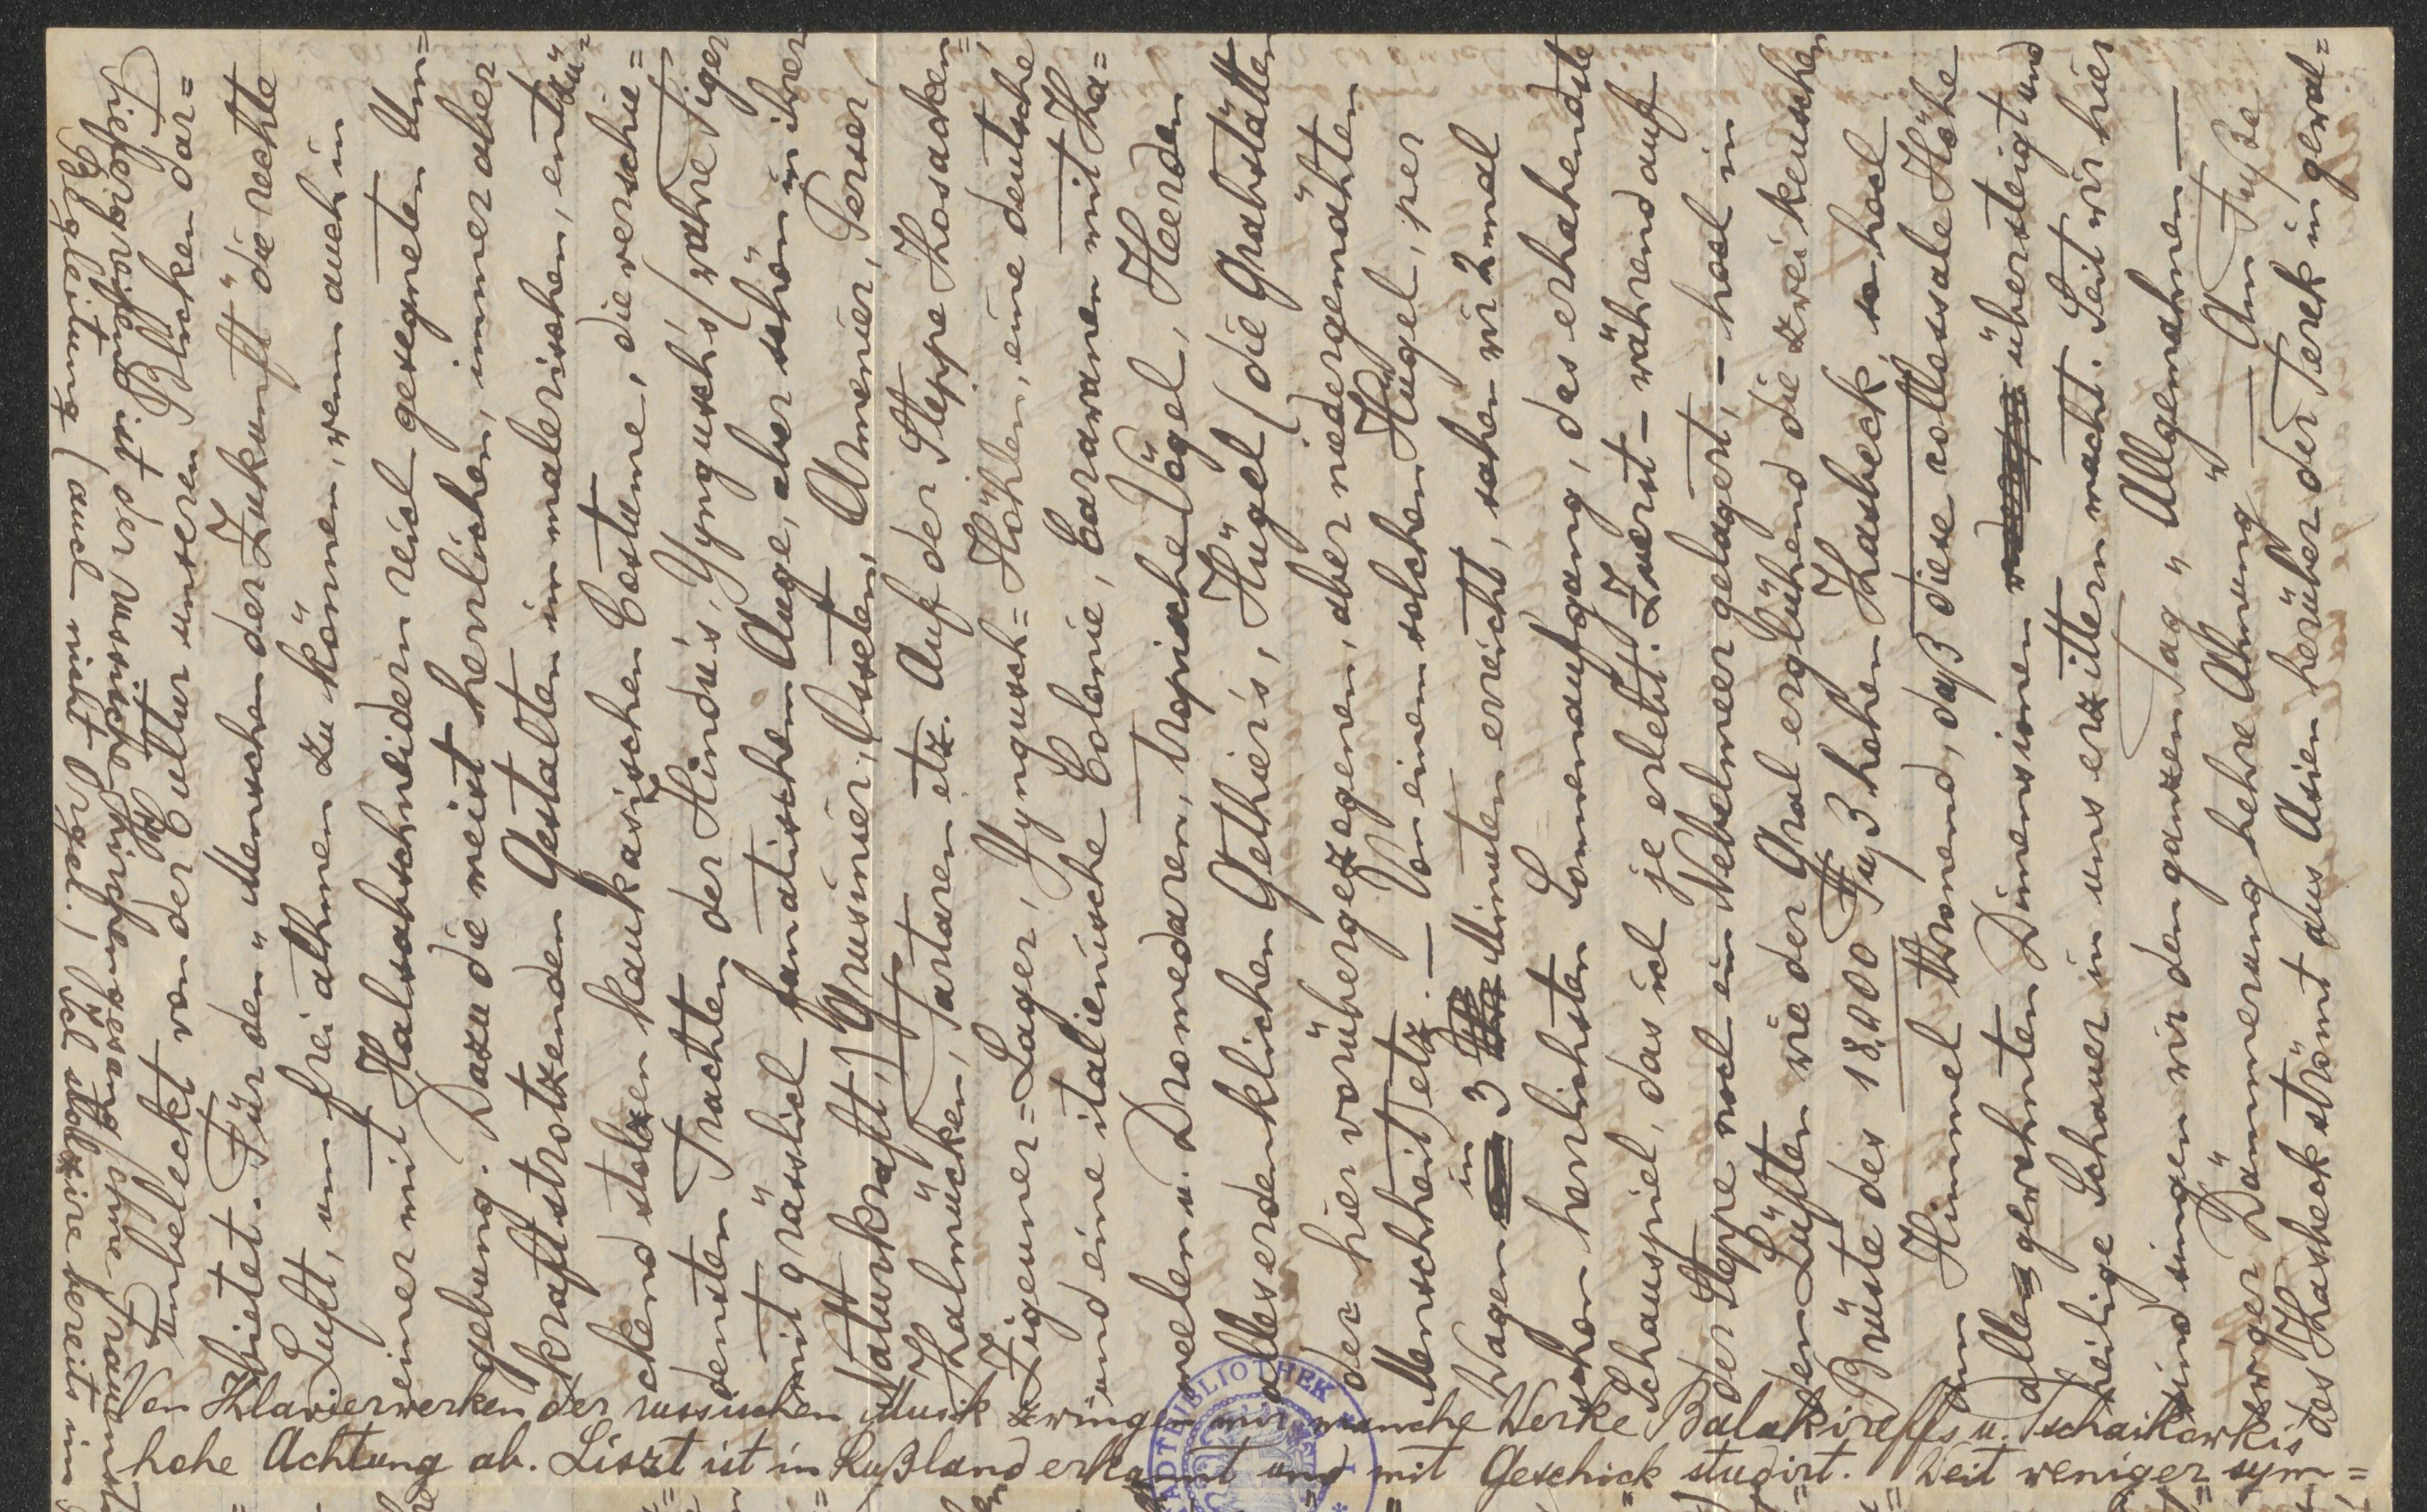 Unbeleckt von der Cultur unseren Blicken dar=
bietet. Für den „Menschen der Zukunft" die rechte
Luft, um frei athmen zu können, wenn auch in
einer mit Halsabschneidern reich gesegneten Um=
gebung. Dazu die meist herrlichen, immer aber
kraftstrotzenden Gestalten im malerischen, entzü=
ckend stolzen kaukasischen Costüme, die verschie=
densten Trachten der Hindu's, Yngusch's (wahre Tiger
mit grässlich fanatischem Auge, aber schön in ihrer
Naturkraft,) Grusinier, Osseten, Armenier, Perser,
Kalmücken, Tartaren etz. Auf der Steppe Kosaken=,
Zigeuner=Lager, Yngusch=Höhlen, eine deutsche
und eine italienische Colonie, Caravanen mit Ka=
meelen u. Dromedaren, tropische Vögel, Heerden
alleserdenklichen Gethier's, Hügel (die Grabstätten
der hier vorübergezogenen, aber niedergemähten
Menschheit) etz. — Von einem solchen Hügel, per
Wagen in 3 Minuten erreicht, sahen wir 2 mal
schon herrlichsten Sonnenaufgang, das erhabendste
Schauspiel, das ich je erlebt. Zuerst – während auf
der Steppe noch ein Nebelmeer gelagert, – hoch in
den Lüften wie der Gral erglühend die zwei keuschen
Brüste des 18,000 Fuß hohen Kasbeck, so hoch
am Himmel thronend, daß diese collossale Höhe
alle gewohnten Dimensionen übersteigt und
heilige Schauer in uns erzittern macht. Seit wir hier
sind singen wir den ganzen Tag „Allgemahnen —
ewiger Dämmerung hehre Ahnung" — Am Fuße
des Kasbeck strömt aus Asien herüber der Terek in gewal=
Von Klavierwerken der russischen Musik zwingen mir manche Werke Balakireffs u. Tschaikowkis
hohe Achtung ab. Liszt ist in Rußland erkannt und mit Geschick studirt. Weit weniger sym=
Tiefergreifend ist der russische Kirchengesang (ohne
Begleitung (auch nicht Orgel.) Ich stolzire bereits im